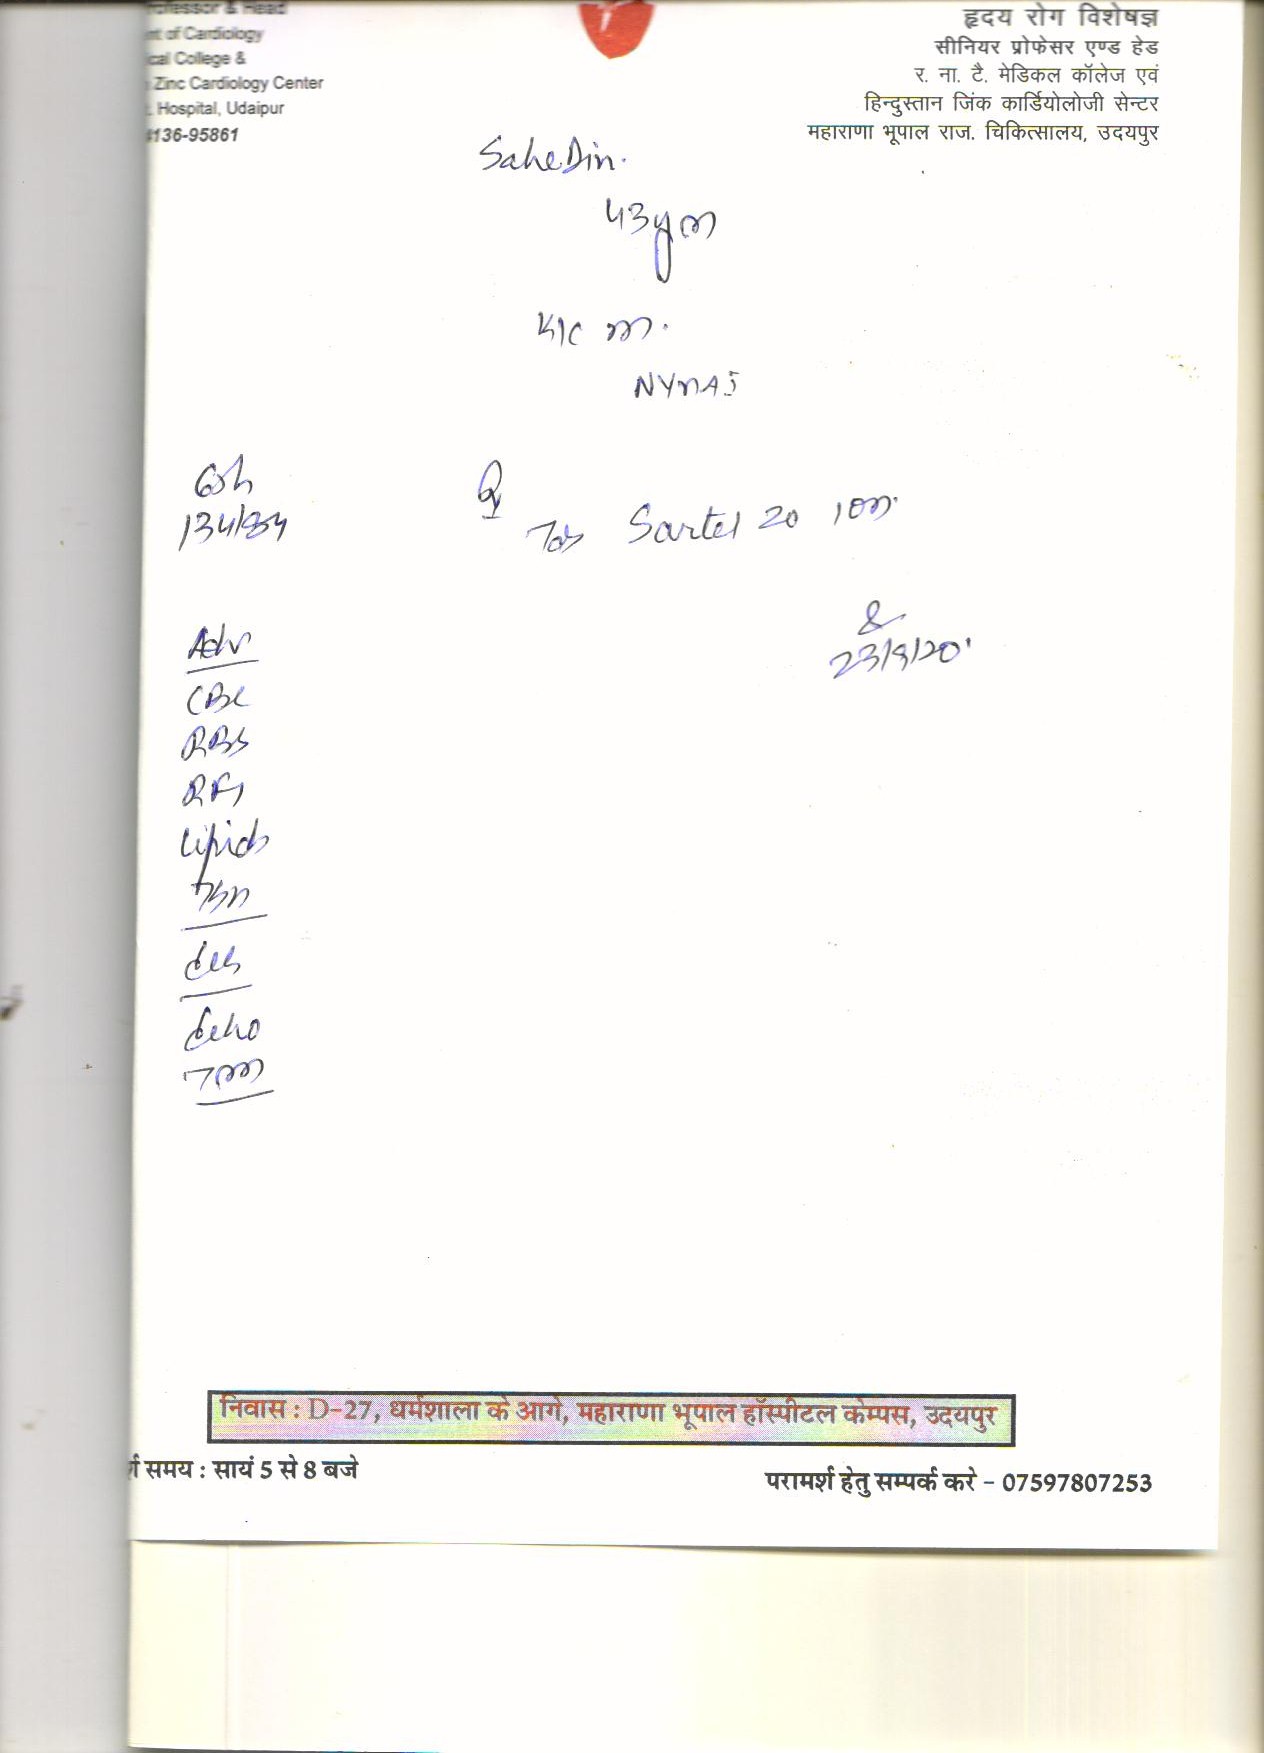 Professor & Head
nt of Cardiology
cal College &
Zinc Cardiology Center
. Hospital, Udaipur
4136-95861
हृदय रोग विशेषज्ञ
सीनियर प्रोफेसर एण्ड हेड
र. ना. टै. मेडिकल कॉलेज एवं
हिन्दुस्तान जिंक कार्डियोलोजी सेन्टर
महाराणा भूपाल राज. चिकित्सालय, उदयपुर
SaheDin.
43ym
K/c
Tab Sartel 20 1 OD
134/84
23/9/20
Adv
CBC
RBS
RFT
Lipids
Echo
TMT
निवास : D-27, धर्मशाला के आगे, महाराणा भूपाल हॉस्पीटल केम्पस, उदयपुर
र्श समय : सायं 5 से 8 बजे
परामर्श हेतु सम्पर्क करे - 07597807253